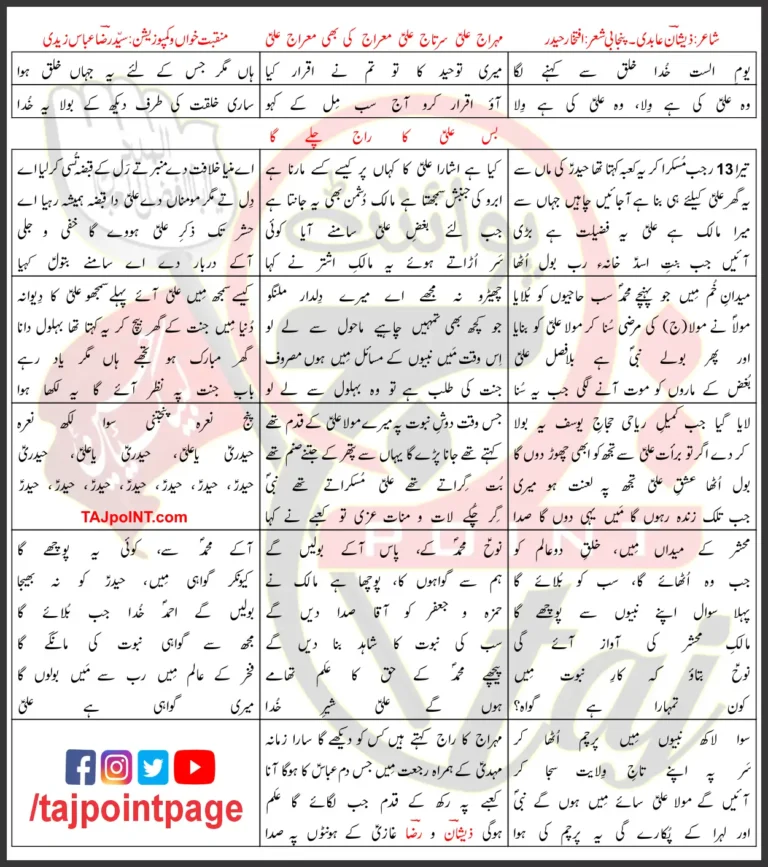 شاعر: ذیشانؔ عابدی۔ پنجابی شعر: افتخار حیدر
مہراج علیؑ سرتاج علیؑ معراج کی بھی معراج علیؑ
منقبت خواں و کمپوزیشن: سیّد رضاؔ عباس زیدی
یومِ الست خُدا خلق سے کہنے لگا
میری توحید کا تو تم نے اقرار کیا
ہاں مگر جس کے لئے یہ جہاں خلق ہوا
وہ علیؑ کی ہے وِلا، وہ علیؑ کی ہے وِلا
آؤ اقرار کرو آج سب مِل کے کہو
ساری خلقت کی طرف دیکھ کے بولا یہ خُدا
بس علیؑ کا راج چلے گا
تیرا 13 رجب مُسکرا کر یہ کعبہ کہتا تھا حیدرؑ کی ماں سے
یہ گھر علیؑ کیلئے ہی بنا ہے آ جائیں چاہیں جہاں سے
میرا مالک ہے علیؑ یہ فضیلت ہے بڑی
آئیں جب بنتِ اسدؑ خانہءِ رب بول اُٹھا
کیا ہے اشارا علیؑ کا کہاں پر کیسے کسے مارنا ہے
ابرو کی جنبش سمجھتا ہے مالک دُشمن بھی یہ جانتا ہے
جب لئے بغضِ علیؑ سامنے آیا کوئی
سَر اُڑاتے ہوئے یہ مالکِ اشتر نے کہا
اے منیا خلافت دے منبر تے رَل کے قبضہ تُسی کر لیا اے
دِل تے مگر مومناں دے علیؑ دا قبضہ ہمیشہ رہیا اے
حشر تک ذکرِ علیؑ ہووے گا خفی و جلی
آکے دربار دے اے سامنے بتولؑ کہیا
میدانِ خُم میں جو پہنچے محمدؐ سب حاجیوں کو بُلایا
مولاؐ نے مولا (ج) کی مرضی سُنا کر مولا علیؑ کو بنایا
اور پھر بولے نبیؐ ہے بلافصل علیؑ
بُغض کے ماروں کو موت آنے لگی جب یہ سُنا
چھیڑو نہ مجھے اے میرے دِلدار ملنگو
جو کچھ بھی تمہیں چاہیے ماحول سے لے لو
اِس وقت مَیں نبیوں کے مسائل میں ہوں مصروف
جنت کی طلب ہے تو وہ بہلول سے لے لو
کیسے سمجھ میں علیؑ آئے پہلے سمجھو علیؑ کا دِیوانہ
دُنیا میں جنت کے گھر بیچ کر یہ کہتا تھا بہلول دانا
گھر مبارک ہو تجھے ہاں مگر یاد رہے
بابِ جنت پہ نظر آئے گا یہ لکھا ہوا
لایا گیا جب کمیلِ ریاحی حجاجِ یوسف یہ بولا
کر دے اگر تو برأت علیؑ سے تجھ کو ابھی چھوڑ دوں گا
بول اُٹھا عشقِ علیؑ تجھ پہ لعنت ہو میری
جب تلک زندہ رہوں گا مَیں یہی دوں گا صدا
جس وقت دوشِ نبوت پہ میرے مولا علیؑ کے قدم تھے
کہتے تھے جانا پڑے گا یہاں سے پتھر کے جتنے صنم تھے
بُت گِراتے تھے علیؑ مُسکراتے تھے نبیؐ
گِر چُکے لات و منات عزیٰ تو کعبے نے کہا
پنج نعرہ پنجتنی سوا لکھ نعرہ
حیدریؑ یاعلیؑ، حیدریؑ یاعلیؑ، حیدریؑ
حیدرؑ، حیدرؑ، حیدرؑ، حیدرؑ، حیدرؑ، حیدرؑ
TAJpoINT.com
محشر کے میداں مِیں، خلقِ دو عالم کو
جب وہ اُٹھائے گا، سب کو بُلائے گا
پہلا سوال اپنے نبیوں سے پوچھے گا
مالکِ محشر کی آواز آئے گی
نوحؑ بتاؤ کہ کارِ نبوت مِیں
کون تمہارا ہے گواہ؟
نوحؑ محمدؐ کے، پاس آکے بولیں گے
ہم سے گواہوں کا، پوچھا ہے مالک نے
حمزہ و جعفر کو آقا صدا دیں گے
سب کی نبوت کا شاہد بنا دیں گے
پیچھے محمدؐ کے حق کا عَلم تھامے
ہوں گے علیؑ شیرِ خُدا
آکے محمدؐ سے، کوئی یہ پوچھے گا
کیونکر گواہی مِیں، حیدرؑ کو نہ بھیجا
بولیں گے احمدؐ خُدا جب بلائے گا
مجھ سے گواہی نبوت کی مانگے گا
فخر کے عالم مِیں رب سے مَیں بولوں گا
میری گواہی ہے علیؑ
سوا لاکھ نبیوں مِیں پرچم اُٹھا کر
سَر پہ اپنے تاجِ وِلایت سجا کر
آئیں گے مولا علیؑ سائے مِیں ہوں گے نبیؐ
اور لہرا کے پُکارے گی یہ پرچم کی ہوا
مہراج کا راج کہتے ہیں کس کو دیکھے گا سارا زمانہ
مہدیؑ کے ہمراہ رجعت مِیں جس دم عباسؑ کا ہوگا آنا
کعبے پہ رکھ کے قدم جب لگائے گا عَلم
ہوگی ذیشانؔ و رضاؔ غازیؑ کے ہونٹوں پہ صدا
/tajpointpage
پوائنٹ
تاج
POINT
taj